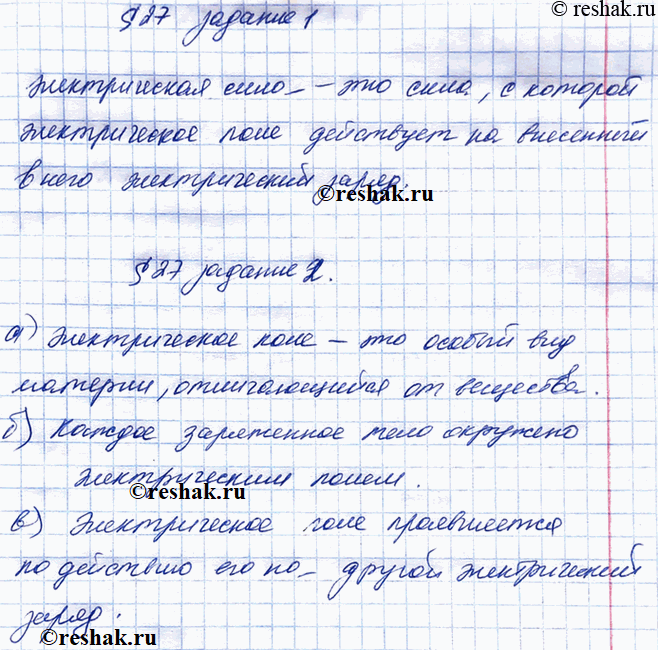 ©reshak.ru
§27 задание 1
Электрическая сила – это сила, с которой
электрическое поле действует на внесенный
в него электрический заряд.
©reshak.ru
§27 задание 2.
а) Электрическое поле – это особый вид
материи, отличающийся от вещества.
б) Каждое заряженное тело окружено
электрическим полем.
©reshak.ru
в) Электрическое поле проявляется
по действию его на другой электрический
заряд.
©reshak.ru